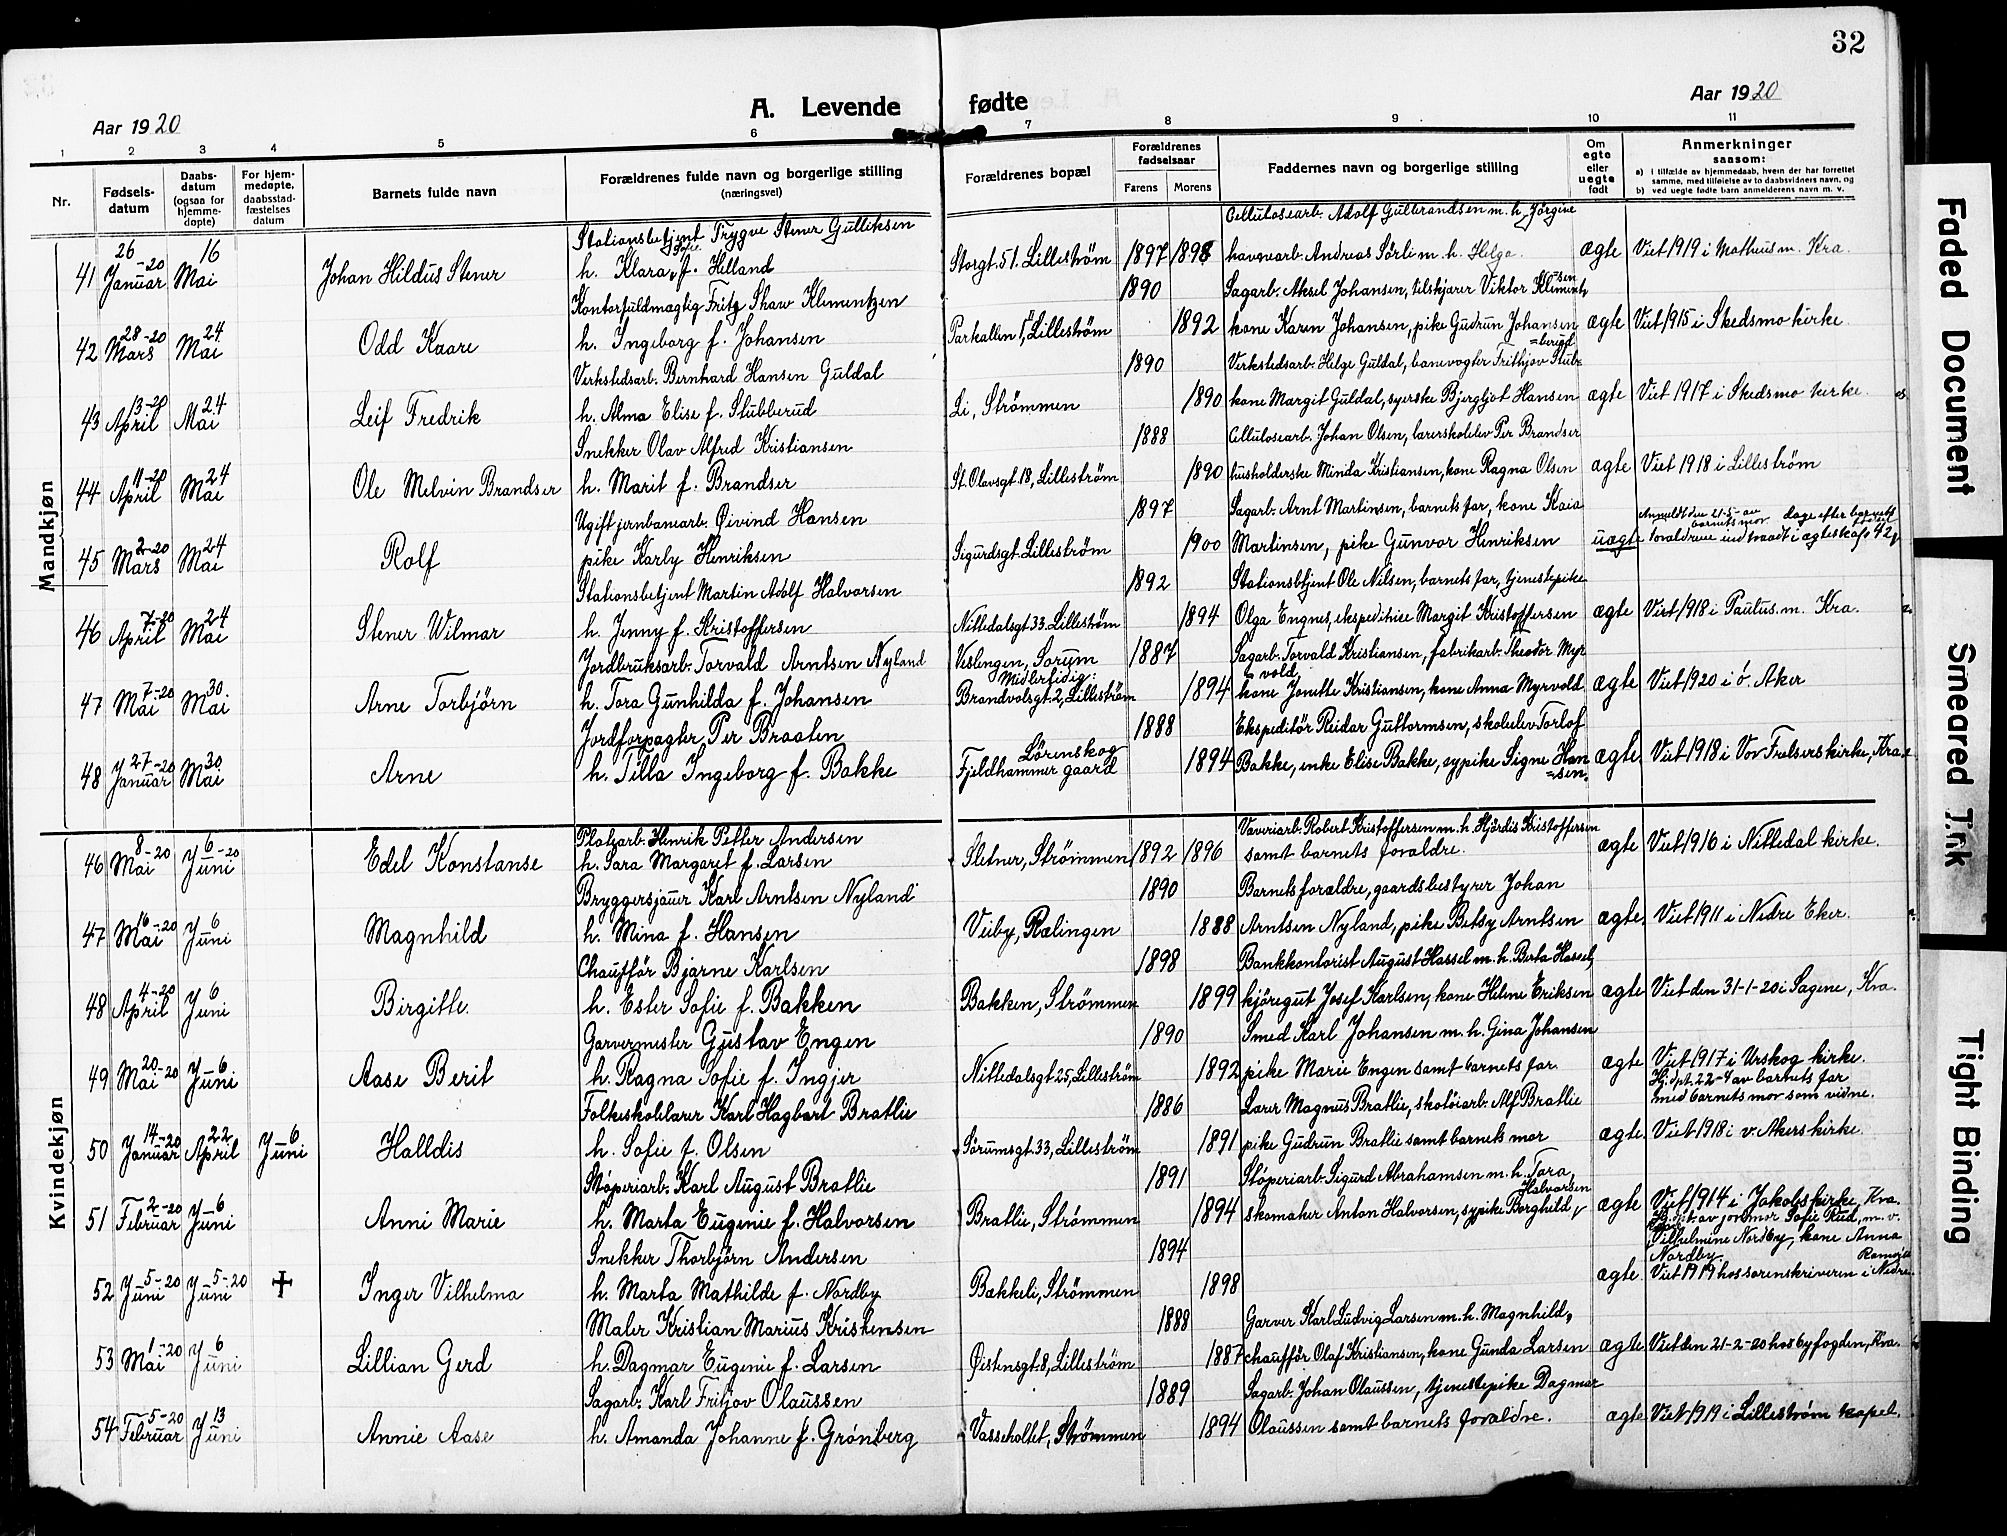 32
Aar 1920
A. Levende fødte
Aar 1920
1 2 3 4 5 6 7 8 9 10 11
Nr.
Fødsels-datum
Daabs-datum (ogsaa for hjemme-døpte)
For hjem-medøpte, daabsstad-fæstelses datum
Barnets fulde navn
Forældrenes fulde navn og borgerlige stilling (næringsvei)
Forældrenes bopæl
Forældrenes fødselsaar
Farens Morens
Faddernes navn og borgerlige stilling
Om egte eller uegte født
Anmerkninger saasom:
a) i tilfælde av hjemmedaab, hvem der har forrettet samme, med tilføielse av to daabsvidners navn, og
b) ved uegte fødte barn anmelderens navn m. v.
Mandkjøn
Stationsbetjent Trygve Stener Gulliksen
Cellulosearb. Adolf Gulbrandsen m. h. Jörgine
41 26-20 Januar 16 Mai Johan Hildus Stener h. Klara Sofie f. Helland Storgt. 51. Lilleström 1897 1898 havnearb. Andreas Sörli m. h. Helga. ægte Viet 1919 i Mathæus m. Kra.
Kontorfuldmægtig Fritz Shaw Klementzen 1890 Sagarb. Aksel Johansen, tilskjærer Viktor Klement=sen,
42 28-20 Mars 24 Mai Odd Kaare h. Ingeborg f. Johansen Parkalleen 1, Lilleström 1892 kone Karen Johansen, pike Gudrun Johansen ægte Viet 1915 i Skedsmo kirke.
Verkstedsarb. Bernhard Hansen Guldal 1890 Verkstedsarb. Helge Guldal, banevogter Frithjov Stub=berud
43 13-20 April 24 Mai Leif Fredrik h. Alma Elise f. Stubberud Li, Strömmen 1890 kone Margit Guldal, syerske Bjergljot Hansen ægte Viet 1917 i Skedsmo kirke.
Snekker Olav Alfred Kristiansen 1888 Cellulosearb. Johan Olsen, lærerskoleelev Per Brandser
44 11-20 April 24 Mai Ole Melvin Brandser h. Marit f. Brandser St. Olavsgt. 18, Lilleström 1890 husholderske Minda Kristiansen, kone Ragna Olsen ægte Viet 1918 i Lilleström
Ugift jernbanearb. Øivind Hansen 1897 Sagarb. Arnt Martinsen, barnets far, kone Kaia
Anmeldt den 21-5- av barnets mor
45 2-20 Mars 24 Mai Rolf pike Karby Henriksen Sigurdsgt. Lilleström 1900 Martinsen, pike Gunvor Henriksen uægte foreldrene indtraadt i ægteskap 42 dage efter barnets fødsel
Stationsbetjent Martin Adolf Halvorsen 1892 Stationsbtjent Ole Nilsen, barnets far, tjenestepike
46 7-20 April 24 Mai Stener Wilmar h. Jenny f. Kristoffersen Nittedalsgt. 33. Lilleström 1894 Olga Engnes, ekspeditrice Margit Kristoffersen ægte Viet 1918 i Paulus. m. Kra.
Jordbruksarb. Torvald Arntsen Nyland Veslengen, Sørum 1887 Sagarb. Torvald Kristiansen, fabrikarb. Theodor Myr
Midlertidig: vold,
47 7-20 Mai 30 Mai Arne Torbjörn h. Tora Gunhilda f. Johansen Brandvolsgt. 2, Lilleström 1894 kone Jonette Kristiansen, kone Anna Myrvold ægte Viet 1920 i ö. Aker
Jordforpagter Per Braaten 1888 Ekspeditör Reidar Guttormsen, skoleelev Torlof
48 27-20 Januar 30 Mai Arne h. Tilla Ingeborg f. Bakke Lörenskog Fjeldhammer gaard 1894 Bakke, enke Elise Bakke, sypike Signe Han=sen. ægte Viet 1918 i Vor Frelsers kirke, Kra
Kvindekjøn
Platearb. Henrik Petter Andersen Væveriarb. Robert Kristoffersen m. h. Hjördis Kristoffersen
46 8-20 Mai 6-20 Juni Edel Konstanse h. Sara Margaret f. Larsen Sletner, Strömmen 1892 1896 samt barnets forældre. ægte Viet 1916 i Nittedal kirke.
Bryggersjauer Karl Arntsen Nyland 1890 Barnets forældre, gaardsbestyrer Johan
47 16-20 Mai 6 Juni Magnhild h. Mina f. Hansen Veiby, Rælingen 1888 Arntsen Nyland, pike Betsy Arntsen ægte Viet 1911 i Nedre Eker.
Chaufför Bjarne Karlsen 1898 Bankkontorist August Hassel m. h. Berta Hassel,
48 4-20 April 6 Juni Birgitte. h. Ester Sofie f. Bakken Bakken, Strömmen 1899 kjöregut Josef Karlsen, kone Helene Eriksen ægte Viet den 31-1-20 i Sagene, Kra.
Garvermester Gustav Engen 1890 Smed Karl Johansen m. h. Gina Johansen
49 20-20 Mai 6 Juni Aase Berit h. Ragna Sofie f. Ingjer Nittedalsgt 25, Lilleström 1892 pike Marie Engen samt barnets far ægte Viet 1917 i Urskog kirke.
Hj. döpt. 22-4 av barnets far med barnets mor som vidne.
Folkeskolelærer Karl Hagbart Bratlie 1886 Lærer Magnus Bratlie, skotöiarb. Alf Bratlie
50 14-20 Januar 22 April 6 Juni Halldis h. Sofie f. Olsen Sörumsgt. 33, Lilleström 1891 pike Gudrun Bratlie samt barnets mor ægte. Viet 1918 i v. Akers kirke.
Støperiarb. Karl August Bratlie 1891 Støperiarb. Sigurd Abrahamsen m. h. Tora,
51 2-20 Februar 6 Juni Anni Marie h. Marta Eugenie f. Halvorsen Bratlie, Strömmen 1894 skomaker Anton Halvorsen, sypike Borghild Halvorsen ægte Viet 1914 i Jakobs kirke, Kra.
Hj. dpt. av jordmor Sofie Rud, m. v. Vilhelmine Nordby, kone Anna Nordby
Snekker Thorbjörn Andersen 1894
52 5-20 Juni 5-20 Juni + Inger Vilhelma h. Marta Mathilde f. Nordby Bakkeli, Strömmen 1898 ægte Viet 1919 hos sorenskriveren i Nedre
Maler Kristian Marius Kristensen 1888 Garver Karl Ludvig Larsen m. h. Magnhild,
53 1-20 Mai 6 Juni Lillian Gerd h. Dagmar Eugenie f. Larsen Øistensgt. 8, Lilleström 1887 chaufför Olaf Kristiansen, kone Gunda Larsen ægte Viet den 21-2-20 hos byfogden, Kra.
Sagarb. Karl Fritjov Olaussen 1889 Sagarb. Johan Olaussen, tjenestepike Dagmar
54 5-20 Februar 13 Juni Annie Aase h. Amanda Johanne f. Grönberg Vasseholtet, Strömmen 1894 Olaussen samt barnets forældre. ægte Viet 1919 i Lilleström kapel.
Faded Document
Smeared Ink
Tight Binding